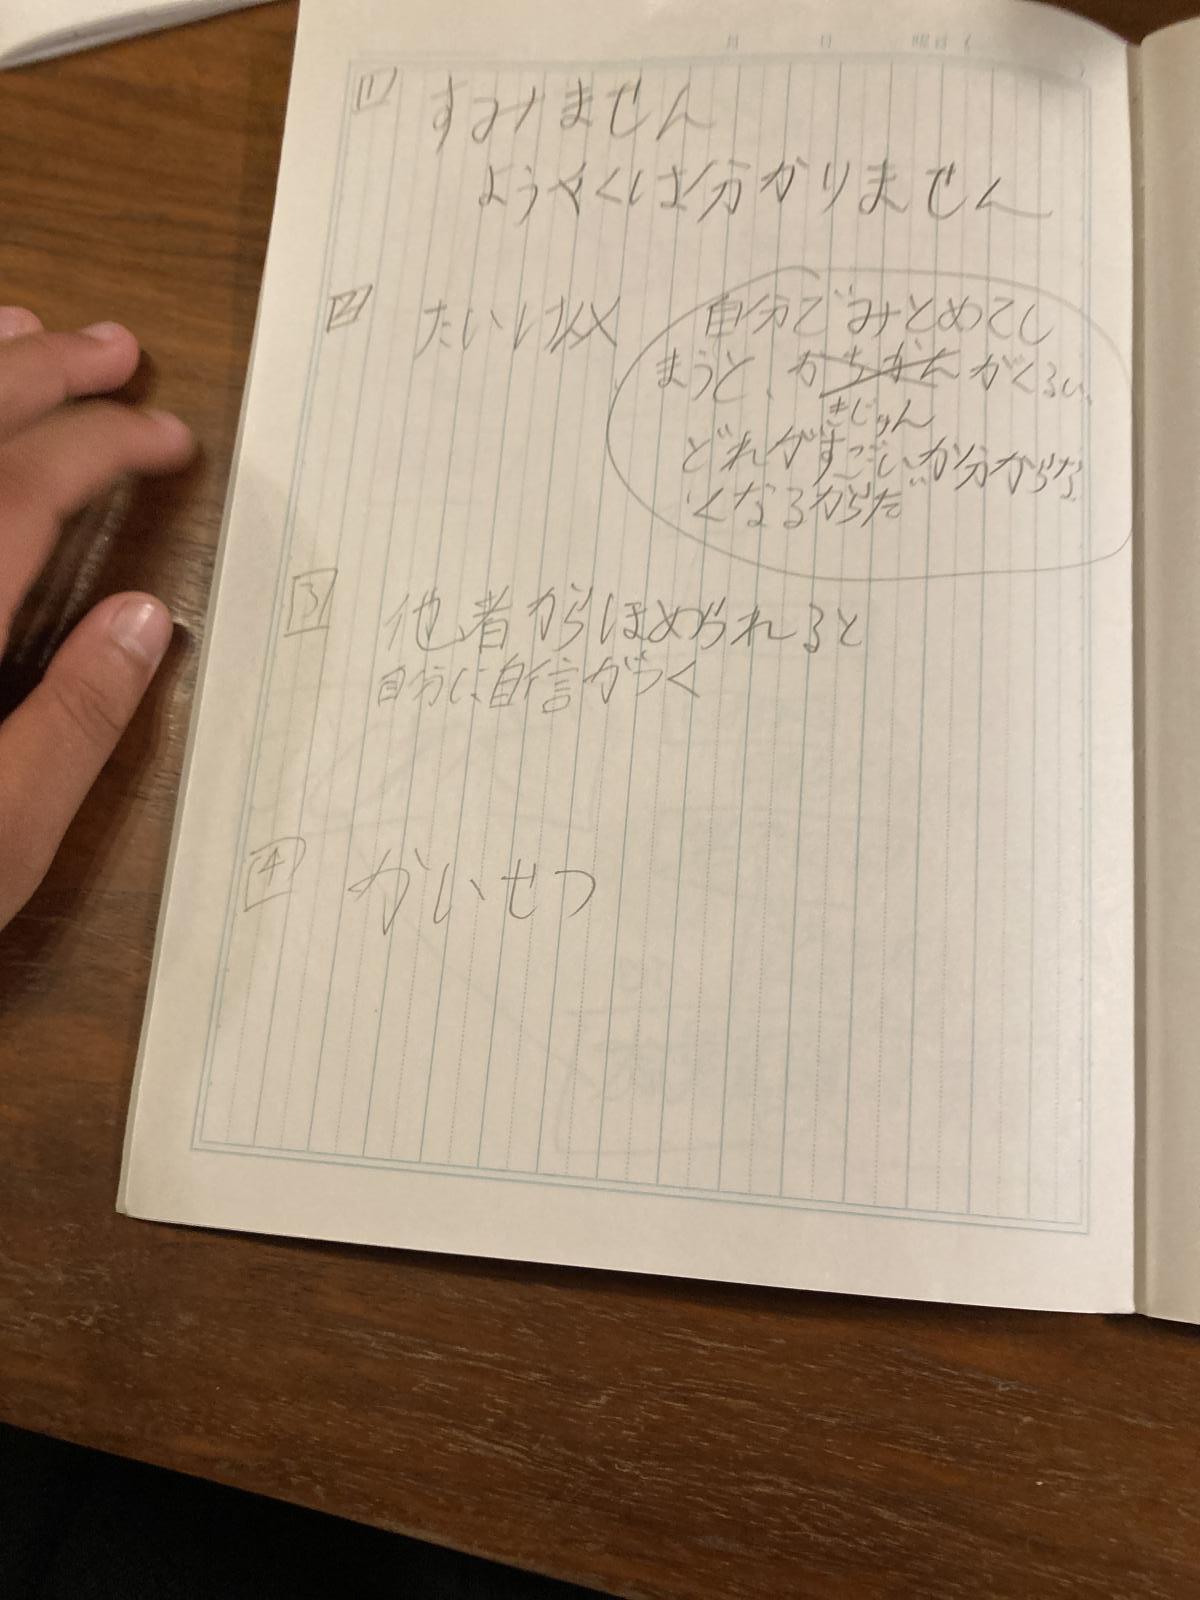 1 すみません
ようやくは分かりません
2 たいけん文
自分でみとめてし
まうと、かちかんがくるい、
きじゅん
どれがすごいか分からな
くなるからだ
3 他者からほめられると
自分に自信がつく
4 かいせつ